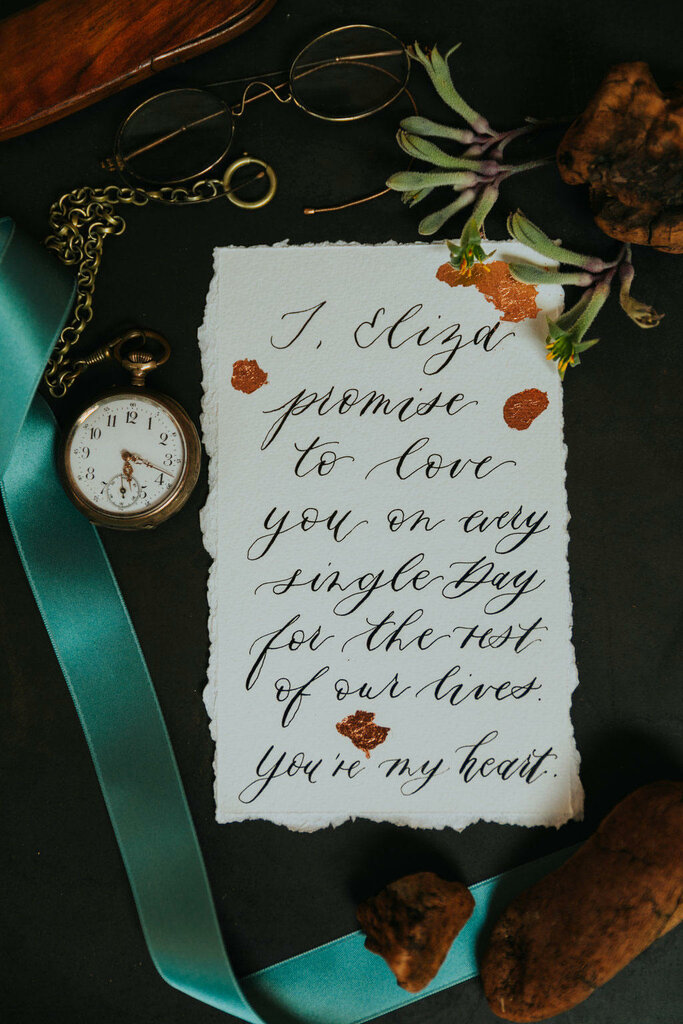 I, Eliza
promise
to love
you on every
single Day
for the rest
of our lives.
You're my heart.
11 12 1
10 2
9 3
8 4
7 5